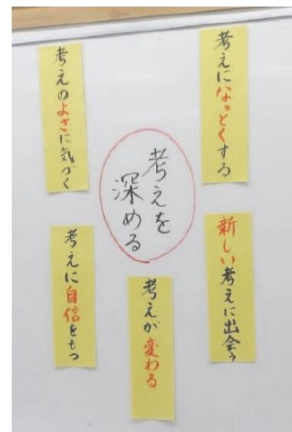 考えになっとくする
考えのよさに気づく
考えを
深める
新しい考えに出会う
考えに自信をもつ
考えが変わる